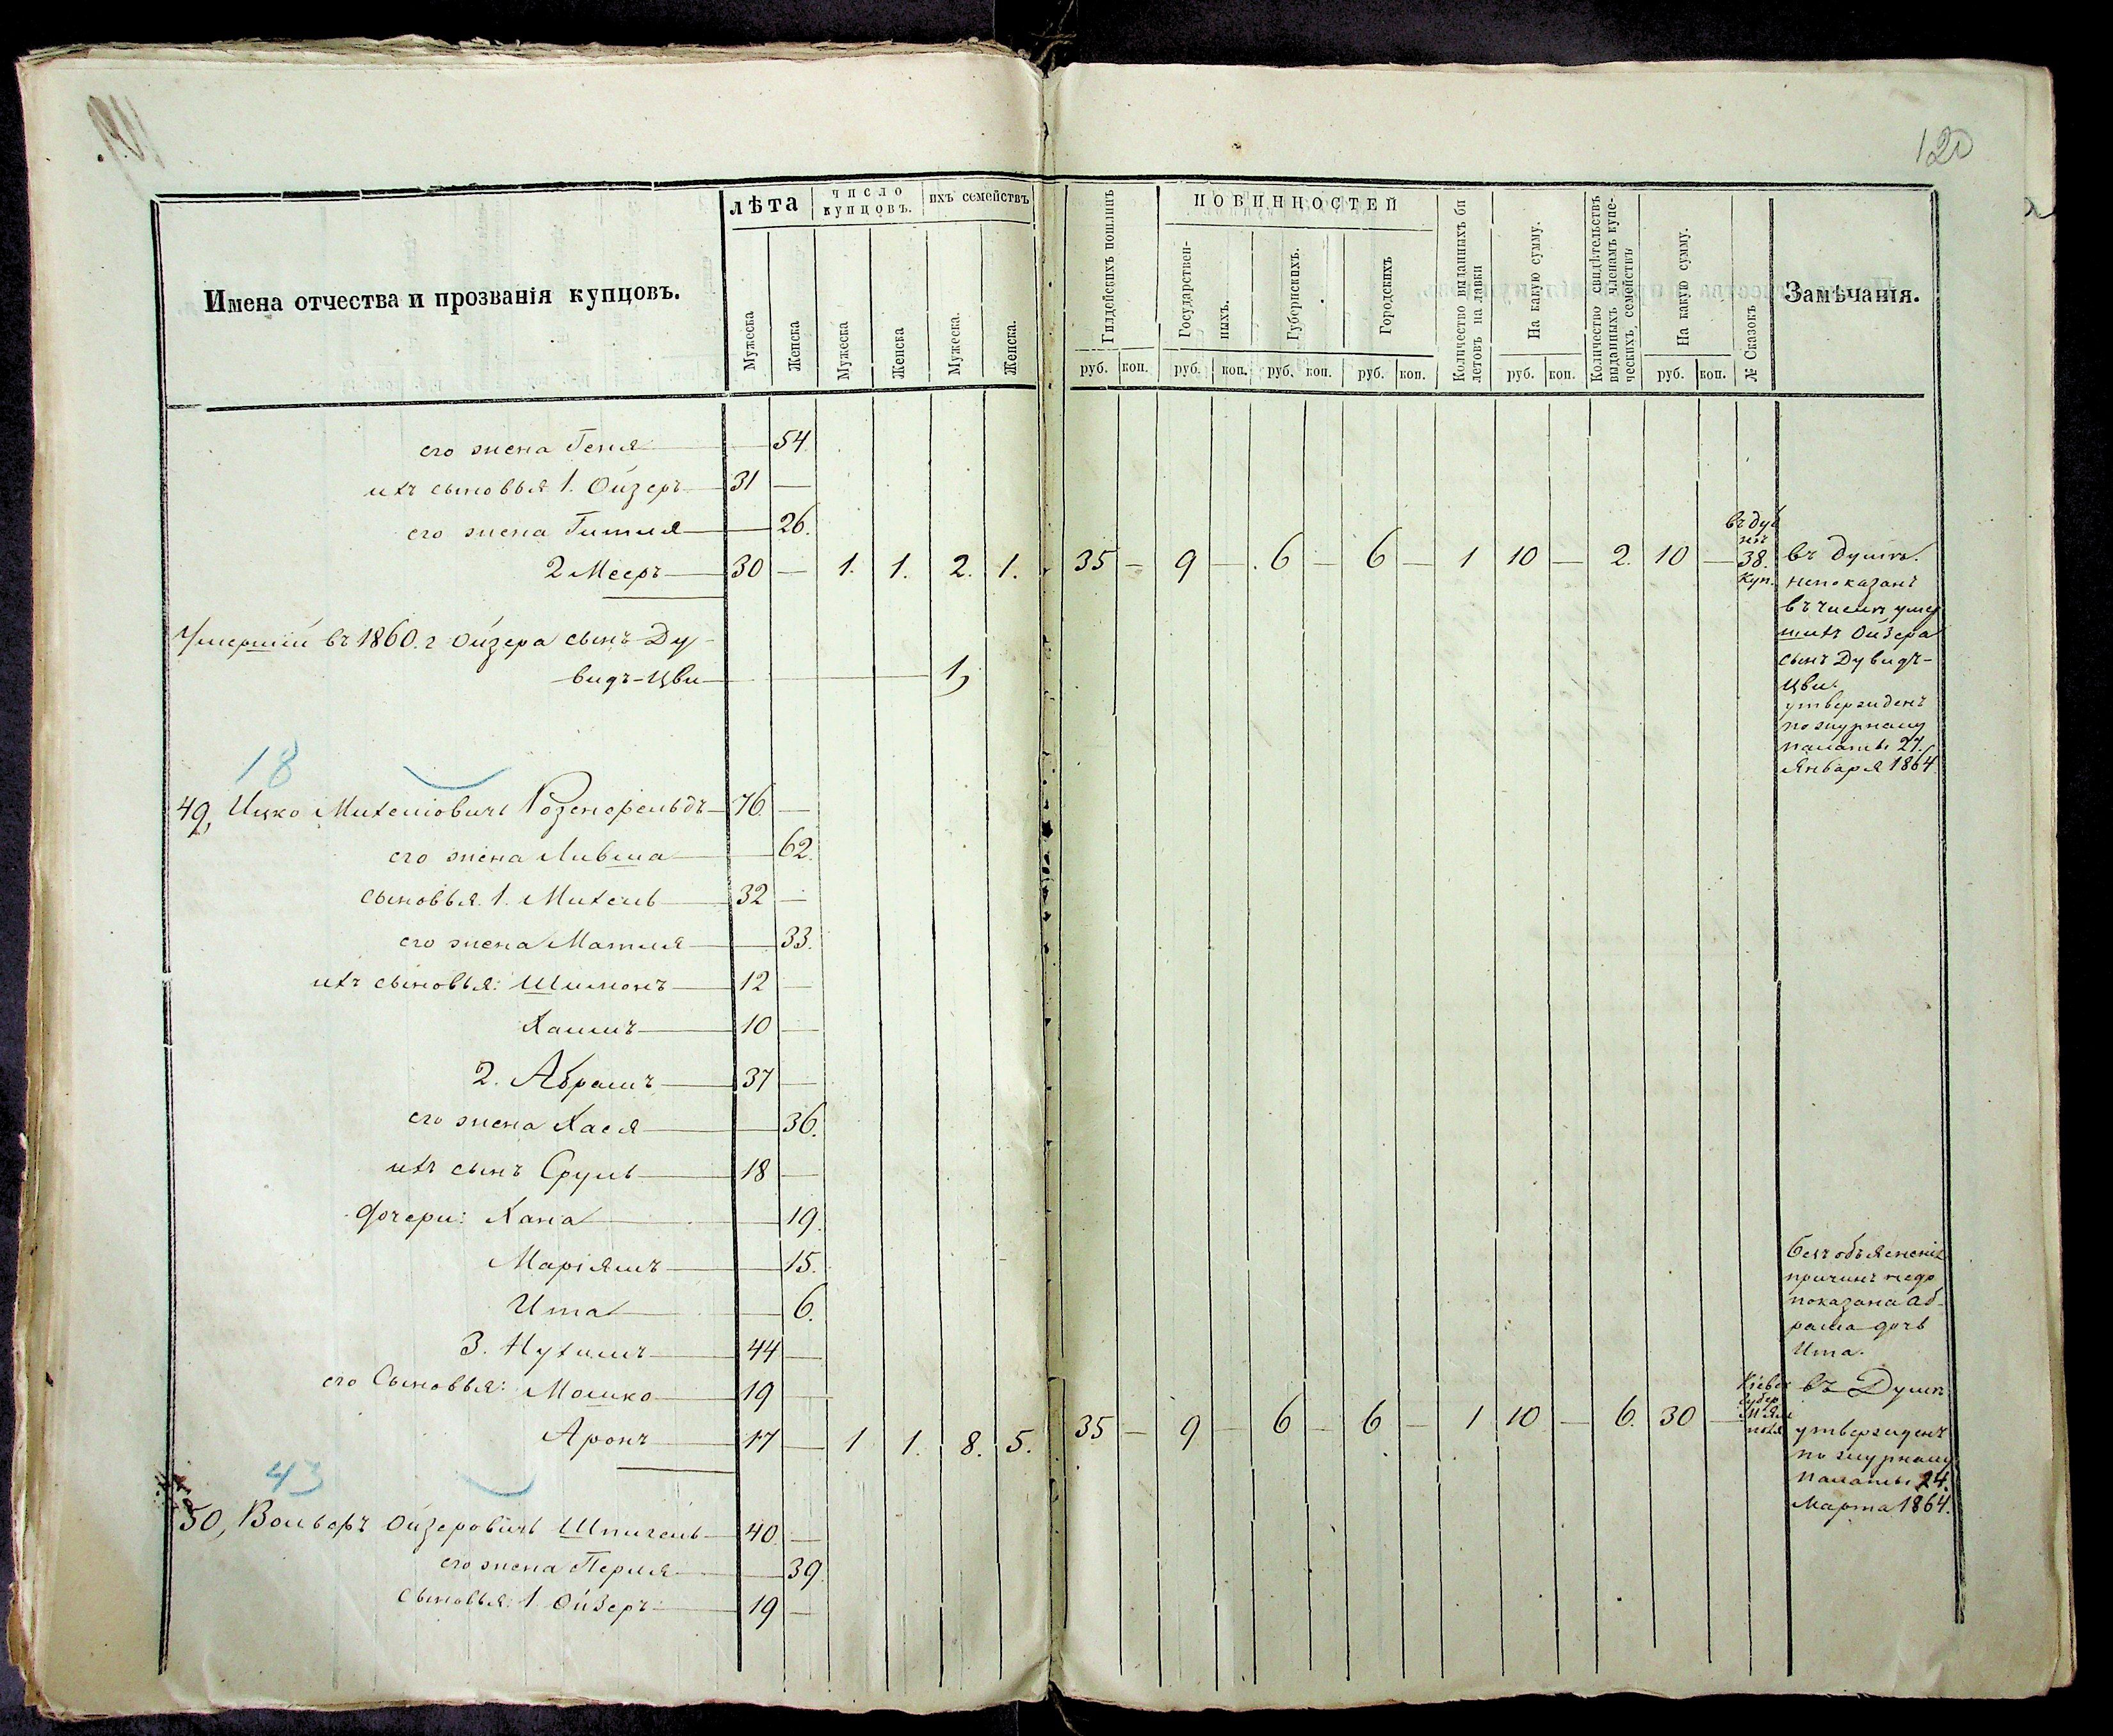 120
Имена отчества и прозванія купцовъ.
лѣта
число купцовъ.
ихъ семействъ
Мужеска
Женска
Мужеска
Женска
Мужеска.
Женска.
Гилдейскихъ пошлинъ
ПОВИННОСТЕЙ
Государственныхъ.
Губернскихъ.
Городскихъ
Количество выданныхъ билетовъ на лавки
На какую сумму.
Количество свидѣтельствъ выданныхъ членамъ купеческихъ семействъ
На какую сумму.
№ Сказокъ
Замѣчанія.
руб. коп. руб. коп. руб. коп. руб. коп. руб. коп. руб. коп.
его жена Геня — 54.
ихъ сыновья 1. Ойзеръ 31 —
его жена Гитля — 26.
2 Мееръ 30 — 1. 1. 2. 1. 35 — 9 — 6 — 6 — 1 10 — 2. 10 — 38.
куп.
Умершій въ 1860. г Ойзера сынъ Ду-
видъ-Цви 1,
въ Думѣ.
непоказанъ
въ числѣ умер
шихъ Ойзера
сынъ Дувидъ-
Цви.
утвержденъ
по журналу
палаты 27.
Января 1864.
18
49, Ицко Михелiовичъ Розенфельдъ 76. —
его жена Ливша — 62.
сыновья. 1. Михель 32 —
его жена Матля — 33.
ихъ сыновья: Шимонъ 12 —
Хаимъ 10 —
2. Абрамъ 37 —
его жена Хася — 36.
ихъ сынъ Сруль 18 —
дочери: Хана — 19.
Маріямъ — 15.
Ита — 6.
3. Нухимъ 44 —
его Сыновья: Мошко 19 —
Аронъ 17 — 1 1. 8. 5. 35 — 9 — 6 — 6 — 1 10 — 6. 30 —
безъ объясненія
причинъ
показана Аб-
рама дочь
Ита.
въ Думѣ
утвержденъ
по журналу
палаты 24.
Марта 1864.
43
50, Вольфъ Ойзеровичъ Шпигель 40 —
его жена Перля — 39.
сыновья: 1 Ойзеръ 19 —